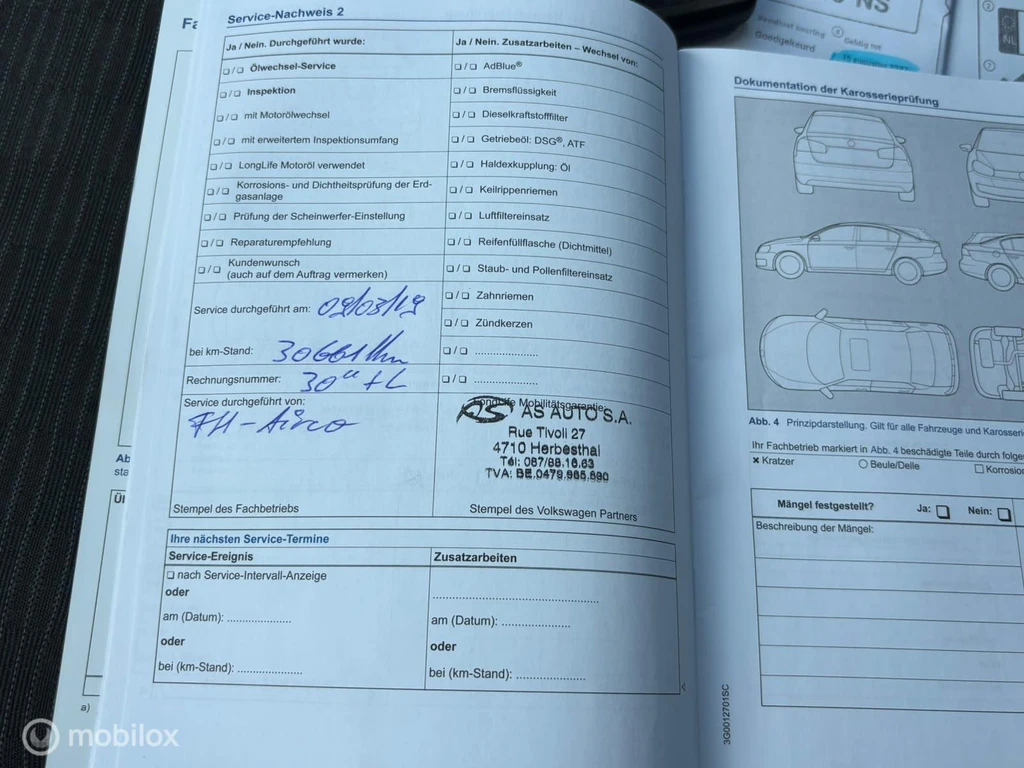 Service-Nachweis 2
Ja / Nein. Durchgeführt wurde:
Ja / Nein. Zusatzarbeiten – Wechsel von:
❏ / ❏ Ölwechsel-Service
❏ / ❏ AdBlue®
❏ / ❏ Inspektion
❏ / ❏ Bremsflüssigkeit
❏ / ❏ mit Motorölwechsel
❏ / ❏ Dieselkraftstofffilter
❏ / ❏ mit erweitertem Inspektionsumfang
❏ / ❏ Getriebeöl: DSG®, ATF
❏ / ❏ LongLife Motoröl verwendet
❏ / ❏ Haldexkupplung: Öl
❏ / ❏ Korrosions- und Dichtheitsprüfung der Erd-
gasanlage
❏ / ❏ Keilrippenriemen
❏ / ❏ Prüfung der Scheinwerfer-Einstellung
❏ / ❏ Luftfiltereinsatz
❏ / ❏ Reparaturempfehlung
❏ / ❏ Reifenfüllflasche (Dichtmittel)
❏ / ❏ Kundenwunsch
(auch auf dem Auftrag vermerken)
❏ / ❏ Staub- und Pollenfiltereinsatz
Service durchgeführt am: 09/03/19
❏ / ❏ Zahnriemen
❏ / ❏ Zündkerzen
bei km-Stand: 30661 km
❏ / ❏ ......................
Rechnungsnummer:
❏ / ❏ ......................
Service durchgeführt von:
LongLife Mobilitätsgarantie:
AS AUTO S.A.
Rue Tivoli 27
4710 Herbesthal
Tél: 087/88.16.63
TVA: BE.0479.965.690
Stempel des Fachbetriebs
Stempel des Volkswagen Partners
Ihre nächsten Service-Termine
Service-Ereignis
Zusatzarbeiten
❏ nach Service-Intervall-Anzeige
oder
am (Datum): ......................
am (Datum): ......................
oder
oder
bei (km-Stand): ......................
bei (km-Stand): ......................
a)
Dokumentation der Karosserieprüfung
Abb. 4 Prinzipdarstellung. Gilt für alle Fahrzeuge und Karosserie
Ihr Fachbetrieb markiert in Abb. 4 beschädigte Teile durch folge
× Kratzer
○ Beule/Delle
❏ Korrosion
Mängel festgestellt? Ja: ❏ Nein: ❏
Beschreibung der Mängel:
3G0012701SC
Goedgekeurd
Geldig tot
NL
mobilox